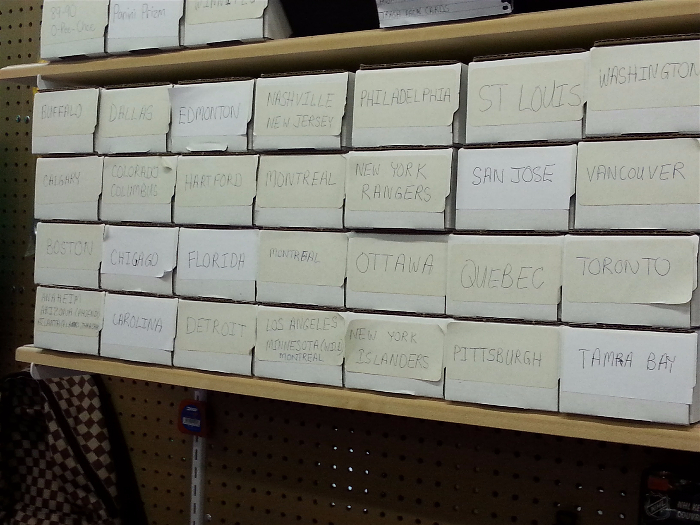 89-90
O-Pee-Chee
Panini Prizm
BUFFALO
DALLAS
EDMONTON
NASHVILLE
NEW JERSEY
PHILADELPHIA
ST LOUIS
WASHINGTON
CALGARY
COLORADO
COLUMBUS
HARTFORD
MONTREAL
NEW YORK
RANGERS
SAN JOSE
VANCOUVER
BOSTON
CHICAGO
FLORIDA
MONTREAL
OTTAWA
QUEBEC
TORONTO
ANAHEIM
CAROLINA
DETROIT
LOS ANGELES
MINNESOTA/WILD
MONTREAL
NEW YORK
ISLANDERS
PITTSBURGH
TAMPA BAY